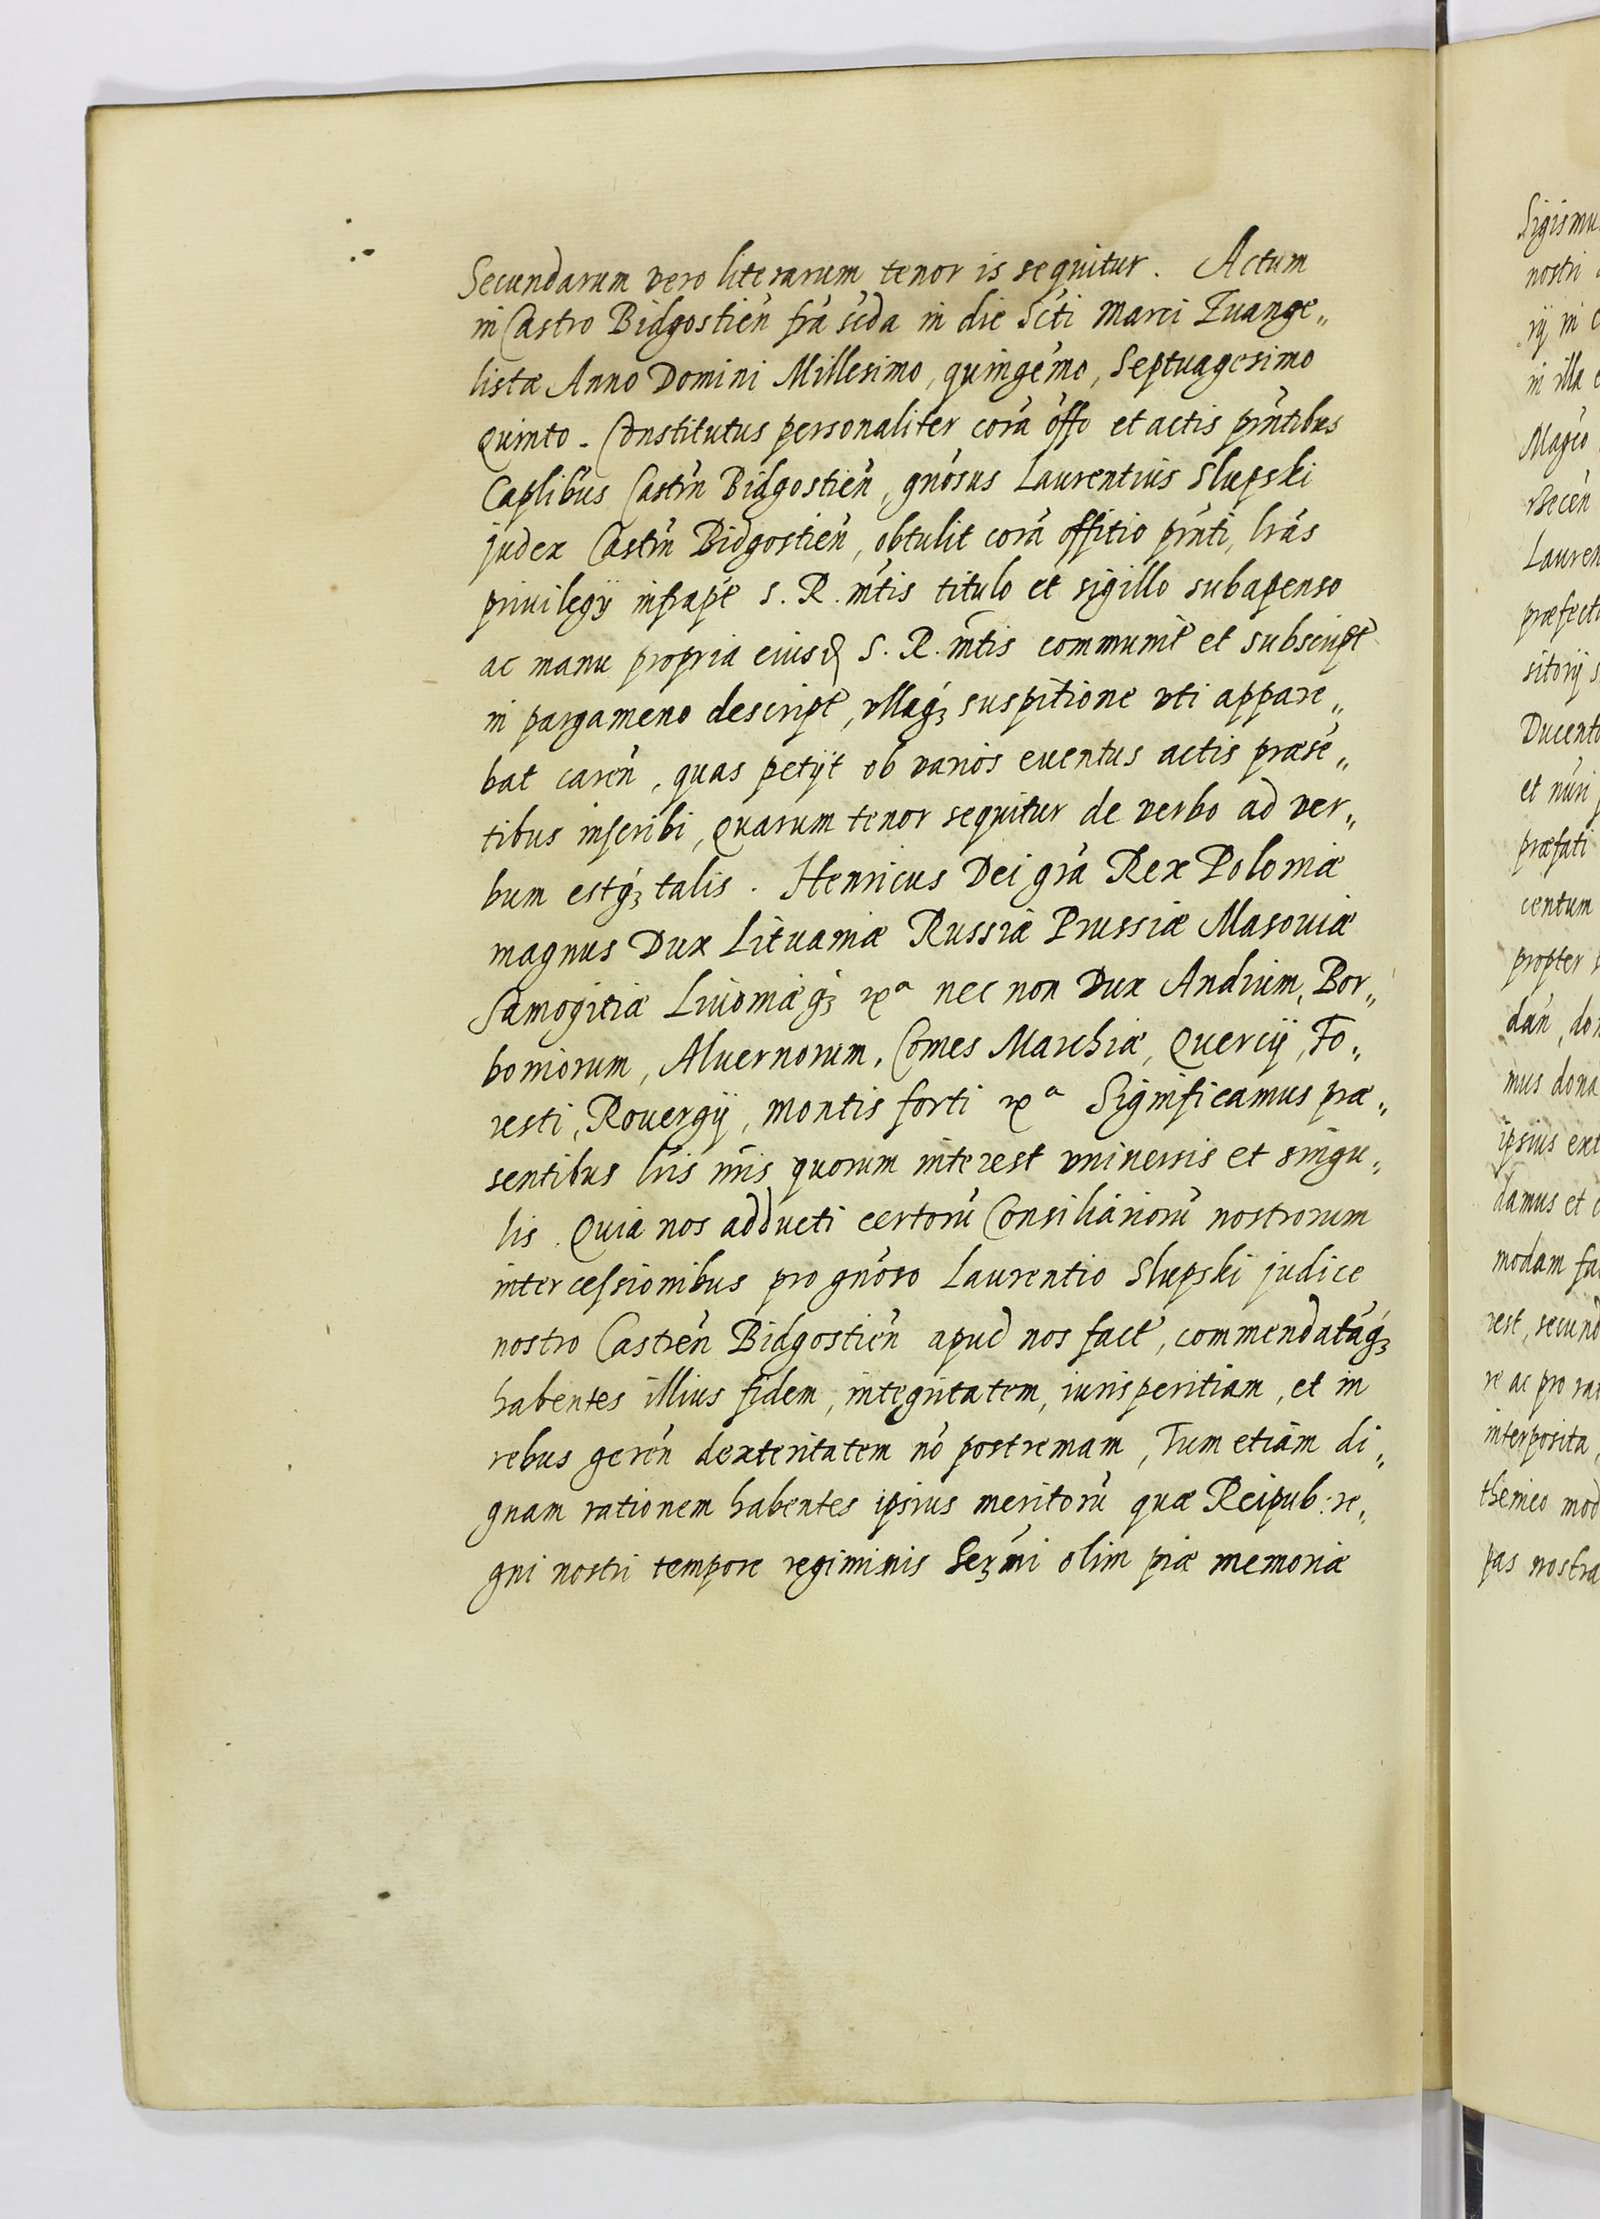 Secundarum vero literarum tenor is sequitur. Actum
in Castro Bidgostien̄ fr̄a sc̄da in die Sc̄ti Marci Euange„
listæ Anno Domini Millesimo, quingēmo, Septuagesimo
Quinto. Constitutus personaliter corā offo et actis pn̄tibus
Cap̄libus Castrn̄ Bidgostien̄, gn̄osus Laurentius Slupski
judex Castrn̄ Bidgostien̄, obtulit corā offitio pn̄ti, lrās
privilegÿ infrapt̄ S. R. mt̄is titulo et sigillo subapenso
ac manu propria eiusd S. R. mt̄is communit̄ et subscript̄
in pargameno descript̄, vllaqȝ suspitione vti appare„
bat caren̄, quas petÿt ob varios euentus actis præsē„
tibus inscribi, Quarum tenor sequitur de verbo ad ver„
bum estqȝ talis. Henricus Dei grā Rex Poloniæ
magnus Dux Lituaniæ Russiæ Prussiæ Masouiæ
Samogitiæ Liuoniæqȝ xa nec non Dux Andium, Bor„
boniorum, Aluernorum, Comes Marchiæ, Quercÿ, Fo„
resti, Rouergÿ, montis forti xa Significamus præ„
sentibus lr̄is nr̄is quorum interest vniuersis et singu„
lis. Quia nos adducti certorū Consiliariorū nostrorum
intercessionibus pro gn̄oso Laurentio Slupski judice
nostro Castren̄ Bidgostien̄ apud nos fact̄, commendatāqȝ
habentes illius fidem, integritatem, iurisperitiam, et in
rebus geren̄ dexteritatem nō postremam, Tum etiam di„
gnam rationem habentes ipsius meritorū quæ Reipub: re„
gni nostri tempore regiminis Serm̄i olim piæ memoriæ
Sigismu
nostri
in illa
Mageo
Becen̄
Lauren
præfect
sitorÿ s
Ducent
et nūri
præfati
centum
propter
dan̄, do
mus dona
ipsius ext
damus et c
modam fa
rest, secund
re ac pro ra
interposita,
themeo mod
pas nostra